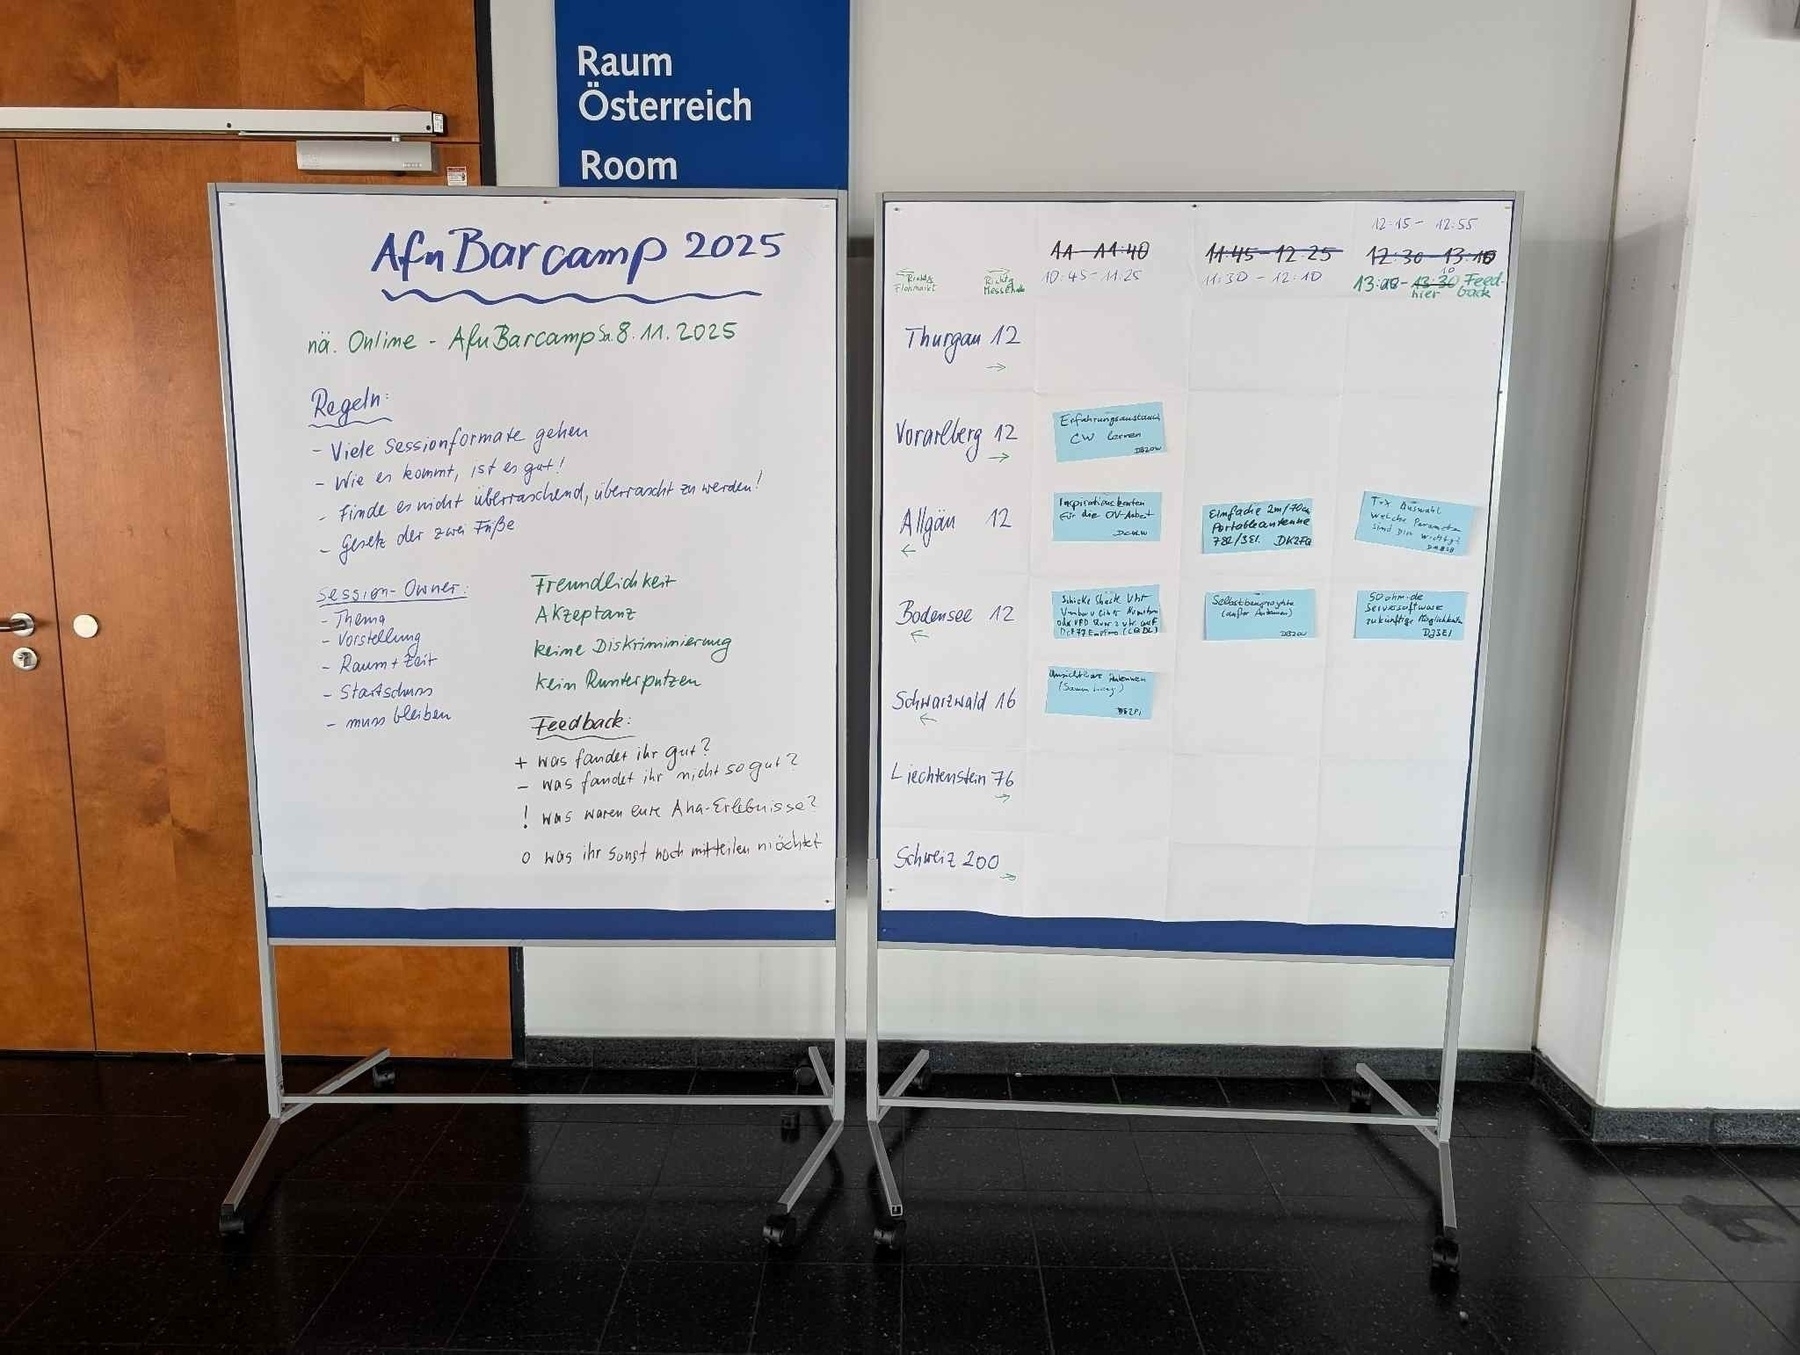 Raum
Österreich
Room
Afu Barcamp 2025
nä. Online - AfuBarcamp Sa. 8. 11. 2025
Regeln:
- Viele Sessionformate gehen
- Wie es kommt, ist es gut!
- Finde es nicht überraschend, überrascht zu werden!
- Gesetz der zwei Füße
Session-Owner:
- Thema
- Vorstellung
- Raum + Zeit
- Startschuss
- muss bleiben
Freundlichkeit
Akzeptanz
keine Diskriminierung
kein Runterputzen
Feedback:
+ was fandet ihr gut?
- was fandet ihr nicht so gut?
! was waren eure Aha-Erlebnisse?
o was ihr sonst noch mitteilen möchtet
12:15 - 12:55
11 - 11:40
11:45-12.25
12:30-13:10
← Richtg Flohmarkt
→ Richtg Messehalle
10:45-11:25
11:30 - 12:10
13:00- 13:30 Feed-
hier back
Thurgau 12
→
Vorarlberg 12
→
Erfahrungsaustausch
CW lernen
DB2OW
Allgäu 12
←
Inspirationskarten
für die OV-Arbeit
Einfache 2m/70cm
Portableantenne
Trx Auswahl
welche Parameter
sind Dir wichtig?
Bodensee 12
←
Schicke Sheck Uhr
Selbstbauprojekte
(außer Antennen)
DB2OW
50ohm.de
Serversoftware
zukünftige Möglichkeiten
DJ3EI
Schwarzwald 16
←
Unsichtbare Antennen
(Sammlung)
Liechtenstein 76
→
Schweiz 200
→